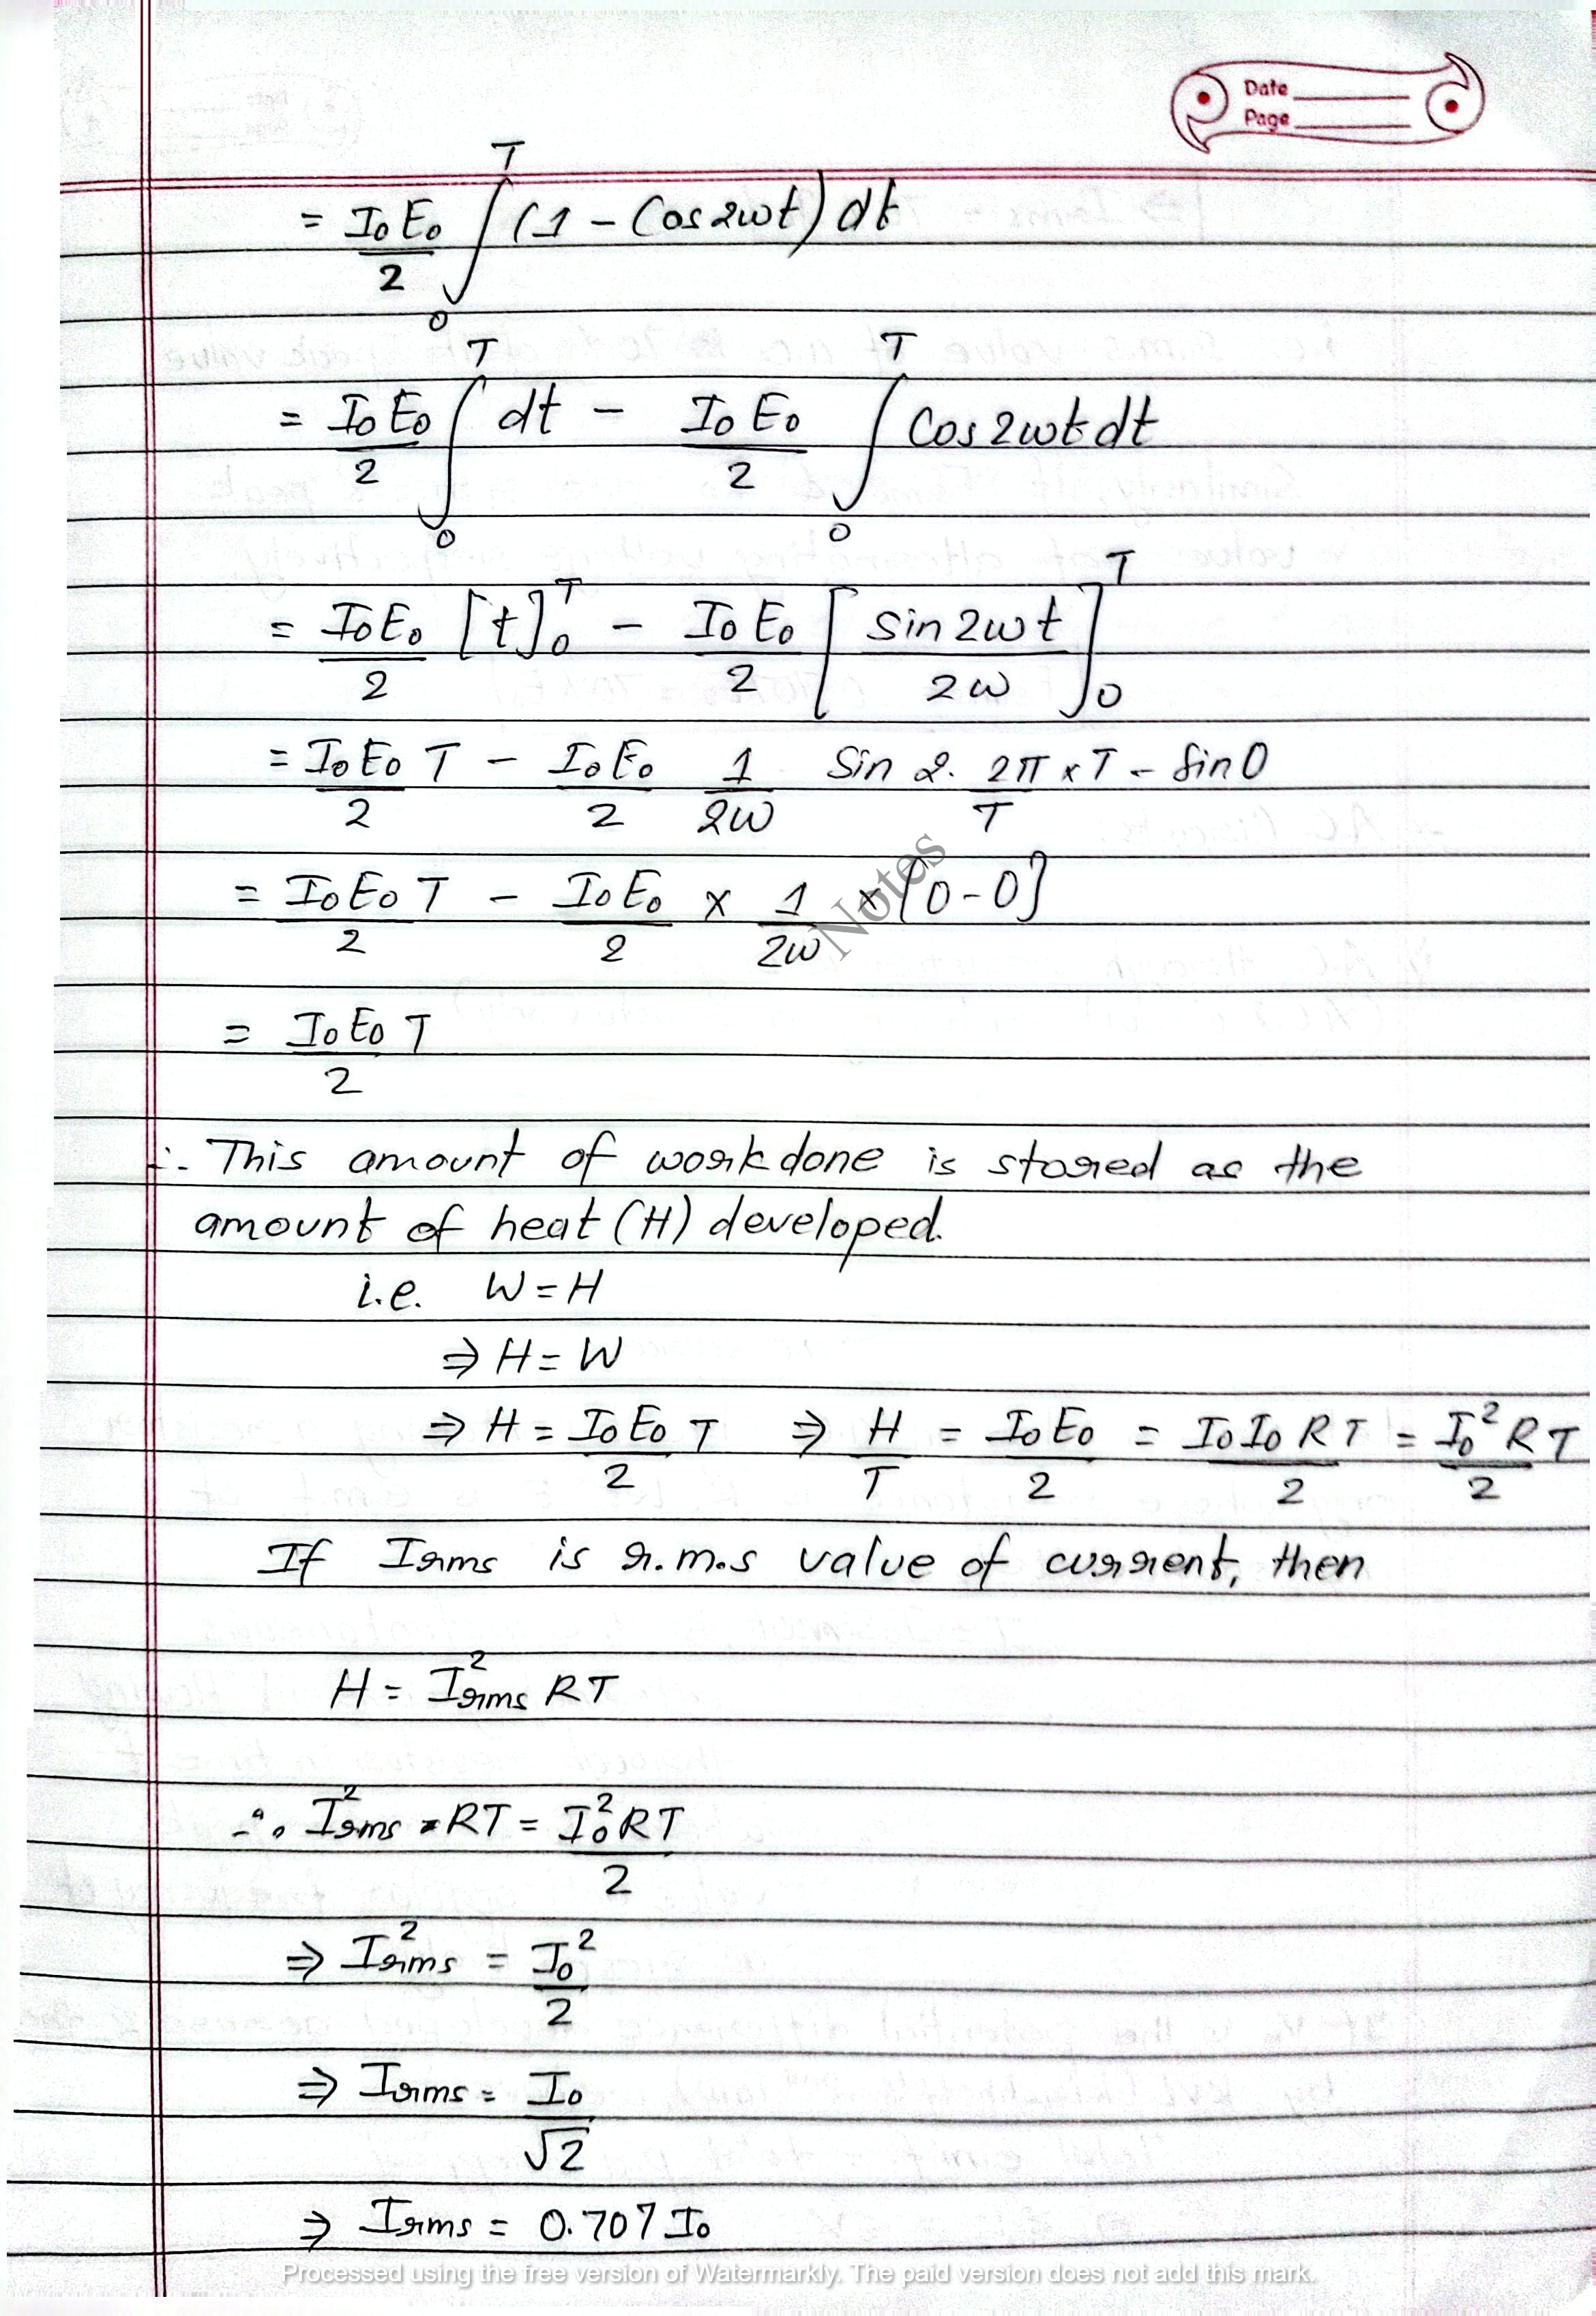 Date
Page
= I₀E₀/2 ∫₀ᵀ (1 - Cos2ωt) dt
= I₀E₀/2 ∫₀ᵀ dt - I₀E₀/2 ∫₀ᵀ Cos2ωt dt
= I₀E₀/2 [t]₀ᵀ - I₀E₀/2 [sin2ωt/2ω]₀ᵀ
= I₀E₀/2 T - I₀E₀/2 1/2ω Sin 2. 2π/T × T - Sin0
= I₀E₀T/2 - I₀E₀/2 × 1/2ω × [0-0]
Notes
= I₀E₀T/2
∴ This amount of workdone is stored as the
amount of heat (H) developed.
i.e. W = H
⇒ H = W
⇒ H = I₀E₀/2 T ⇒ H/T = I₀E₀/2 = I₀I₀RT/2 = I₀²RT/2
If Irms is r.m.s value of current, then
H = I²rms RT
∴ I²rms RT = I₀²RT/2
⇒ I²rms = I₀²/2
⇒ Irms = I₀/√2
⇒ Irms = 0.707 I₀
Processed using the free version of Watermarkly. The paid version does not add this mark.